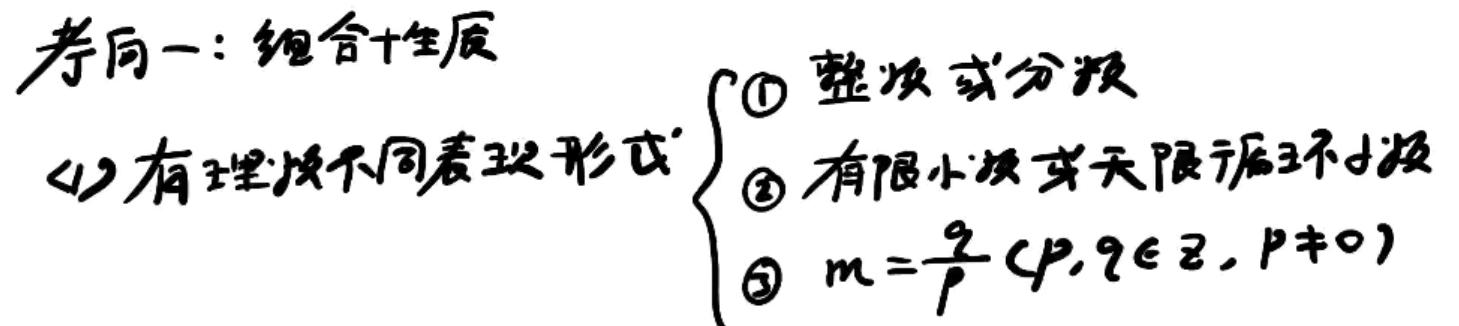 考向一：组合+性质
<1>有理数不同表现形式
① 整数或分数
② 有限小数或无限循环小数
③ m=q/p (p,q∈Z,p≠0)